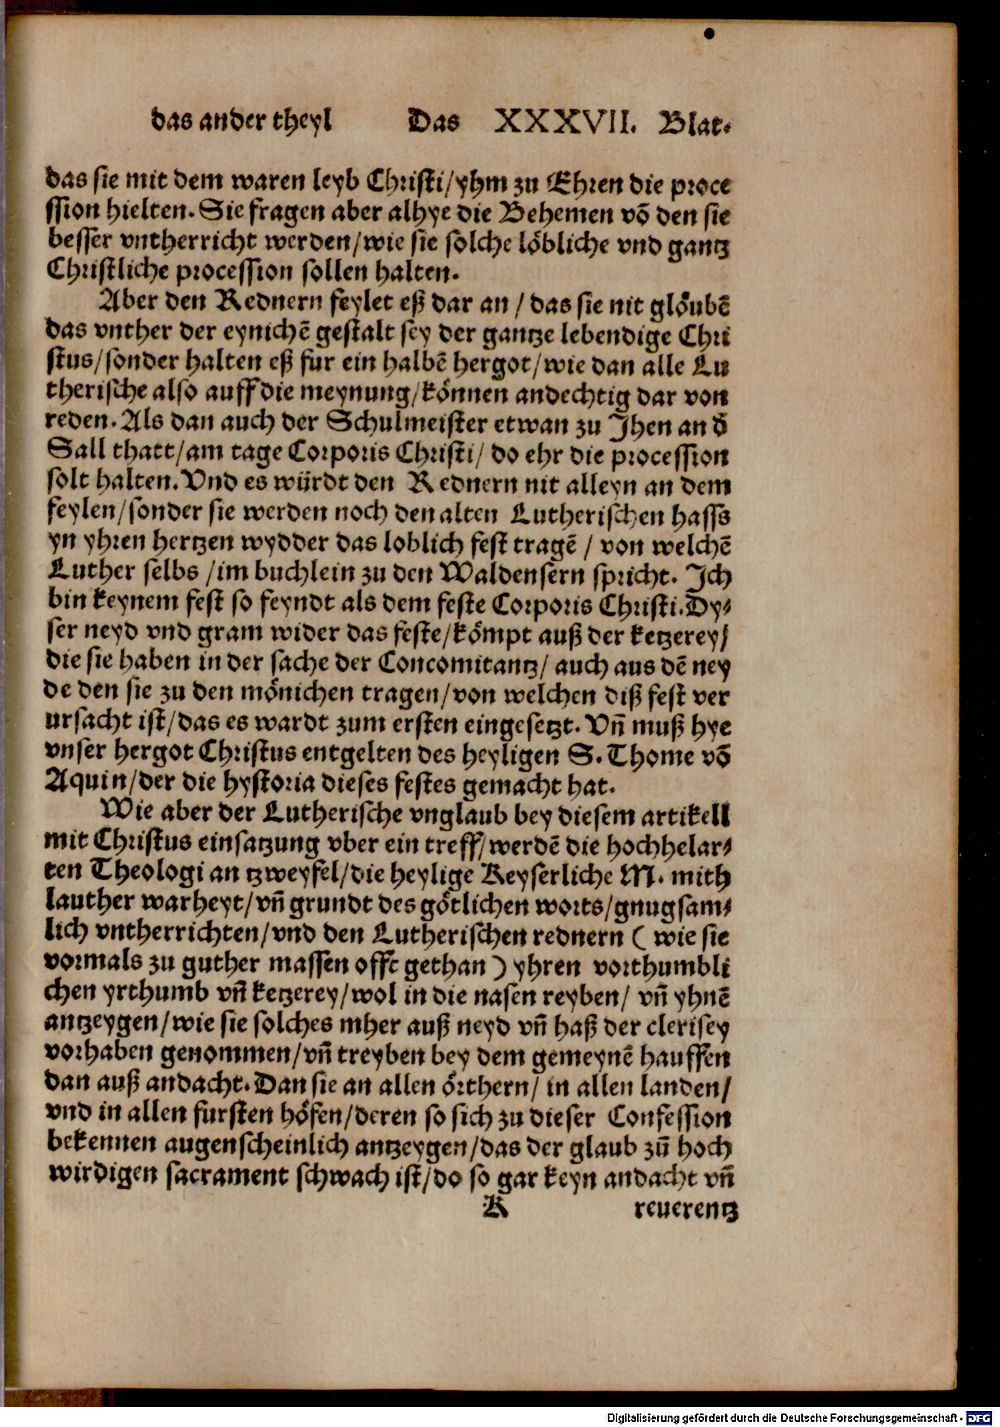 das ander theyl Das XXXVII. Blat.
das sie mit dem waren leyb Christi/yhm zu Ehren die proce
ssion hielten. Sie fragen aber alhye die Behemen vō den sie
besser vntherricht werden/wie sie solche löbliche vnd gantz
Christliche procession sollen halten.
Aber den Rednern feylet eß dar an / das sie nit glöubē
das vnther der eynichē gestalt sey der gantze lebendige Chri
stus/sonder halten eß fur ein halbē hergot/wie dan alle Lu
therische also auff die meynung/können andechtig dar von
reden. Als dan auch der Schulmeister etwan zu Jhen an d̄
Sall thatt/am tage Corporis Christi/ do ehr die procession
solt halten. Vnd es würdt den Rednern nit alleyn an dem
feylen/sonder sie werden noch den alten Lutherischen hasss
yn yhren hertzen wydder das loblich fest tragē / von welchē
Luther selbs /im buchlein zu den Waldensern spricht. Ich
bin keynem fest so feyndt als dem feste Corporis Christi. Dy⸗
ser neyd vnd gram wider das feste/kömpt auß der ketzerey/
die sie haben in der sache der Concomitantz/ auch aus dē ney
de den sie zu den mönichen tragen/von welchen diß fest ver
ursacht ist/das es wardt zum ersten eingesetzt. Vn̄ muß hye
vnser hergot Christus entgelten des heyligen S. Thome vō
Aquin/der die hystoria dieses festes gemacht hat.
Wie aber der Lutherische vnglaub bey diesem artikell
mit Christus einsatzung vber ein treff/werdē die hochhelar⸗
ten Theologi an tzweyfel/die heylige Keyserliche M. mith
lauther warheyt/vn̄ grundt des götlichen worts/gnugsam⸗
lich vntherrichten/vnd den Lutherischen rednern ( wie sie
vormals zu guther massen offt gethan ) yhren vorthumbli
chen yrthumb vn̄ ketzerey/wol in die nasen reyben/ vn̄ yhnē
antzeygen/wie sie solches mher auß neyd vn̄ haß der clerisey
vorhaben genommen/vn̄ treyben bey dem gemeynē hauffen
dan auß andacht. Dan sie an allen örthern/ in allen landen/
vnd in allen fursten höfen/deren so sich zu dieser Confession
bekennen augenscheinlich antzeygen/das der glaub zū hoch
wirdigen sacrament schwach ist/do so gar keyn andacht vn̄
K reuerentz
Digitalisierung gefördert durch die Deutsche Forschungsgemeinschaft - DFG